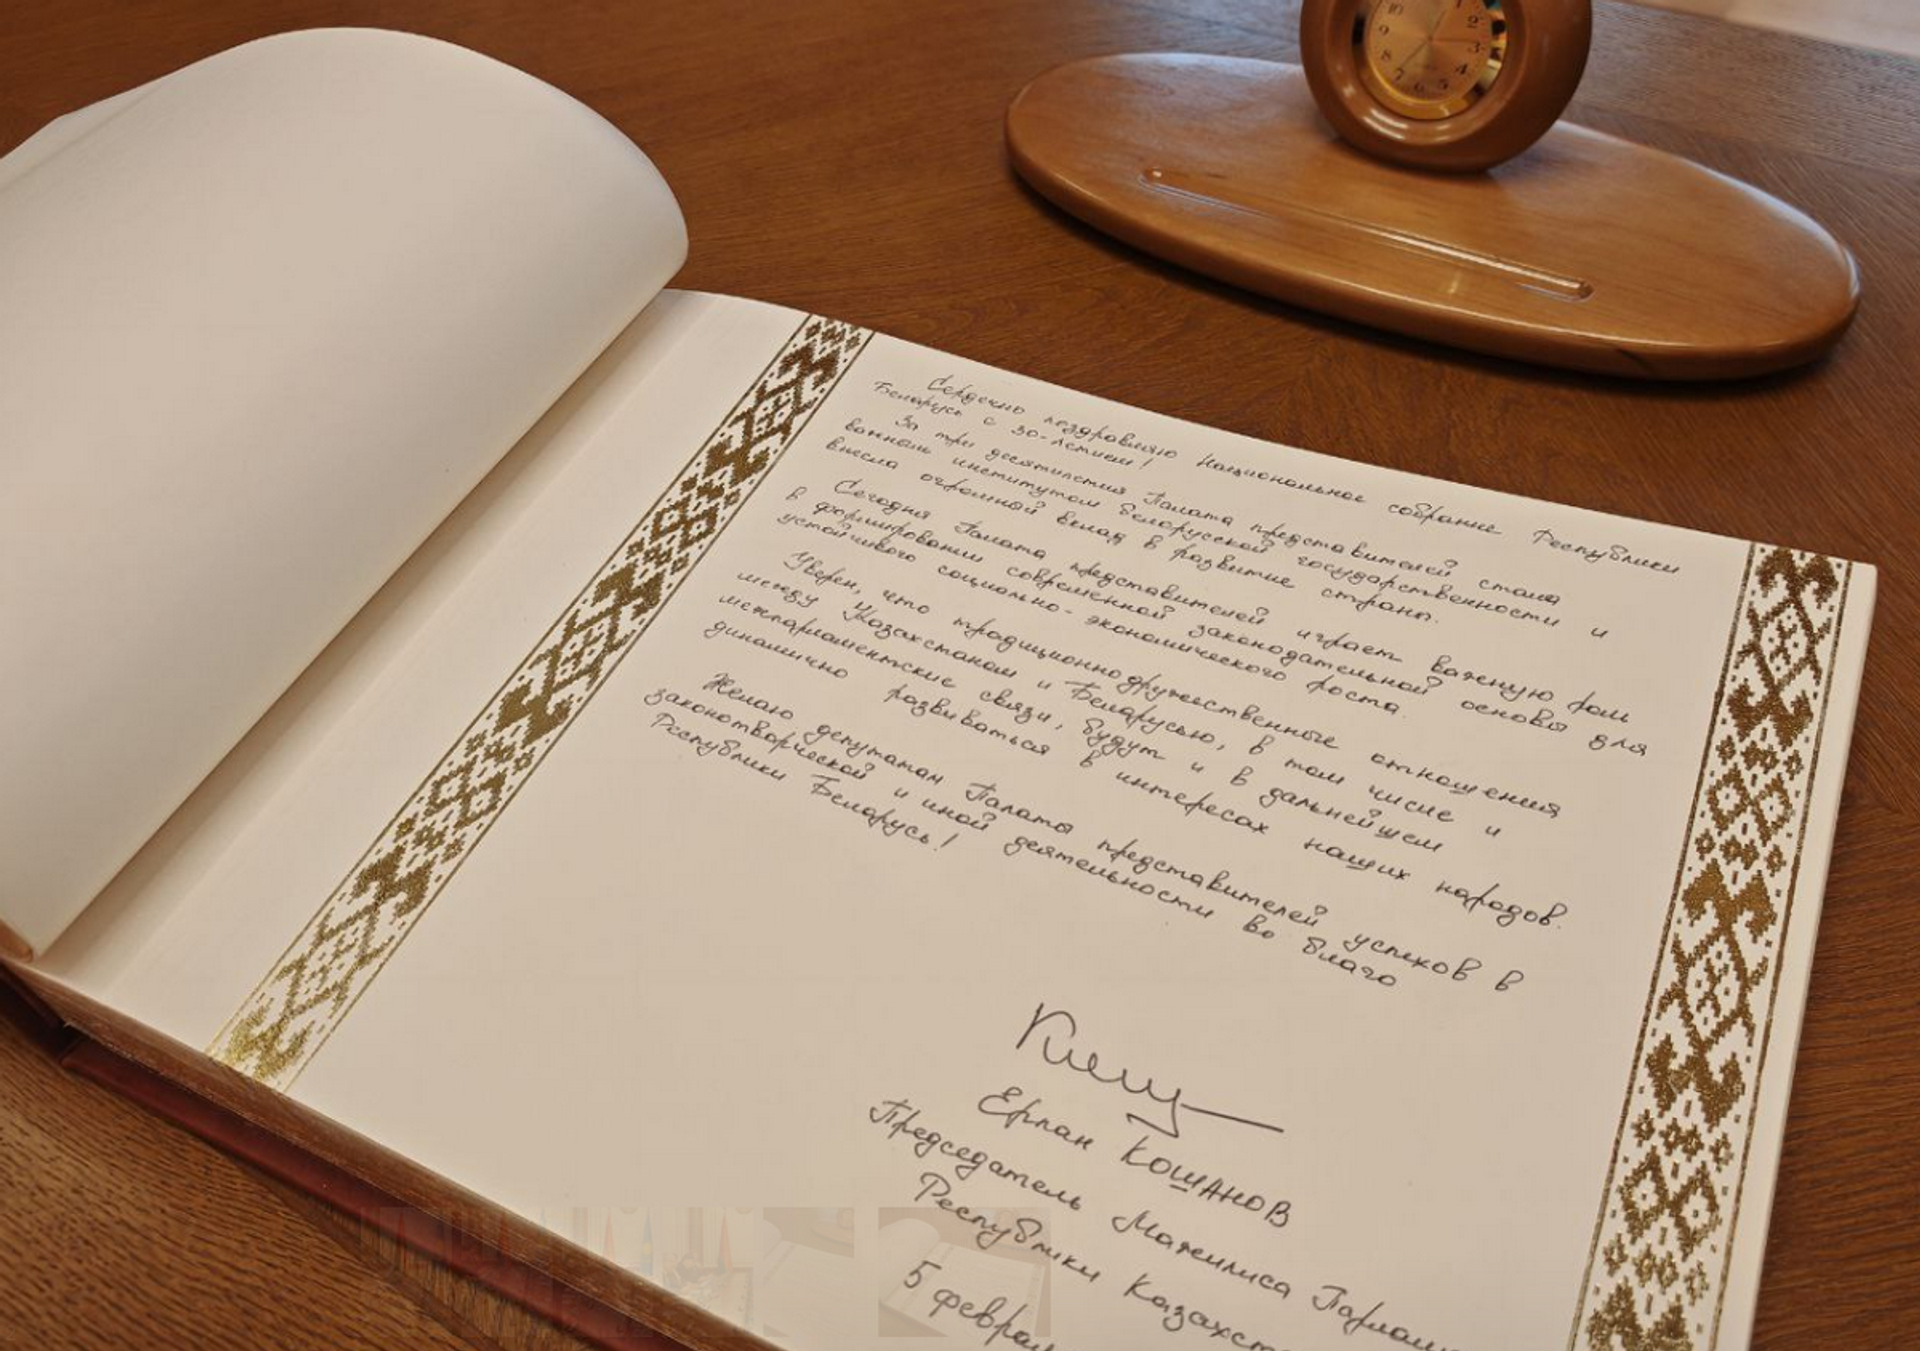 Сердечно поздравляю Национальное собрание Республики
Беларусь с 30-летием!
За три десятилетия Палата представителей стала
важным институтом белорусской государственности и
внесла огромный вклад в развитие страны.
Сегодня Палата представителей играет важную роль
в формировании современной законодательной основы для
устойчивого социально-экономического роста.
Уверен, что традиционно дружественные отношения
между Казахстаном и Беларусью, в том числе и
межпарламентские связи, будут и в дальнейшем
динамично развиваться в интересах наших народов.
Желаю депутатам Палаты представителей успехов в
законотворческой и иной деятельности во благо
Республики Беларусь!
Ерлан Кошанов
Председатель Мажилиса Парламе
Республики Казахст
5 феврал
10 1 2 3 4 5 7 8 9